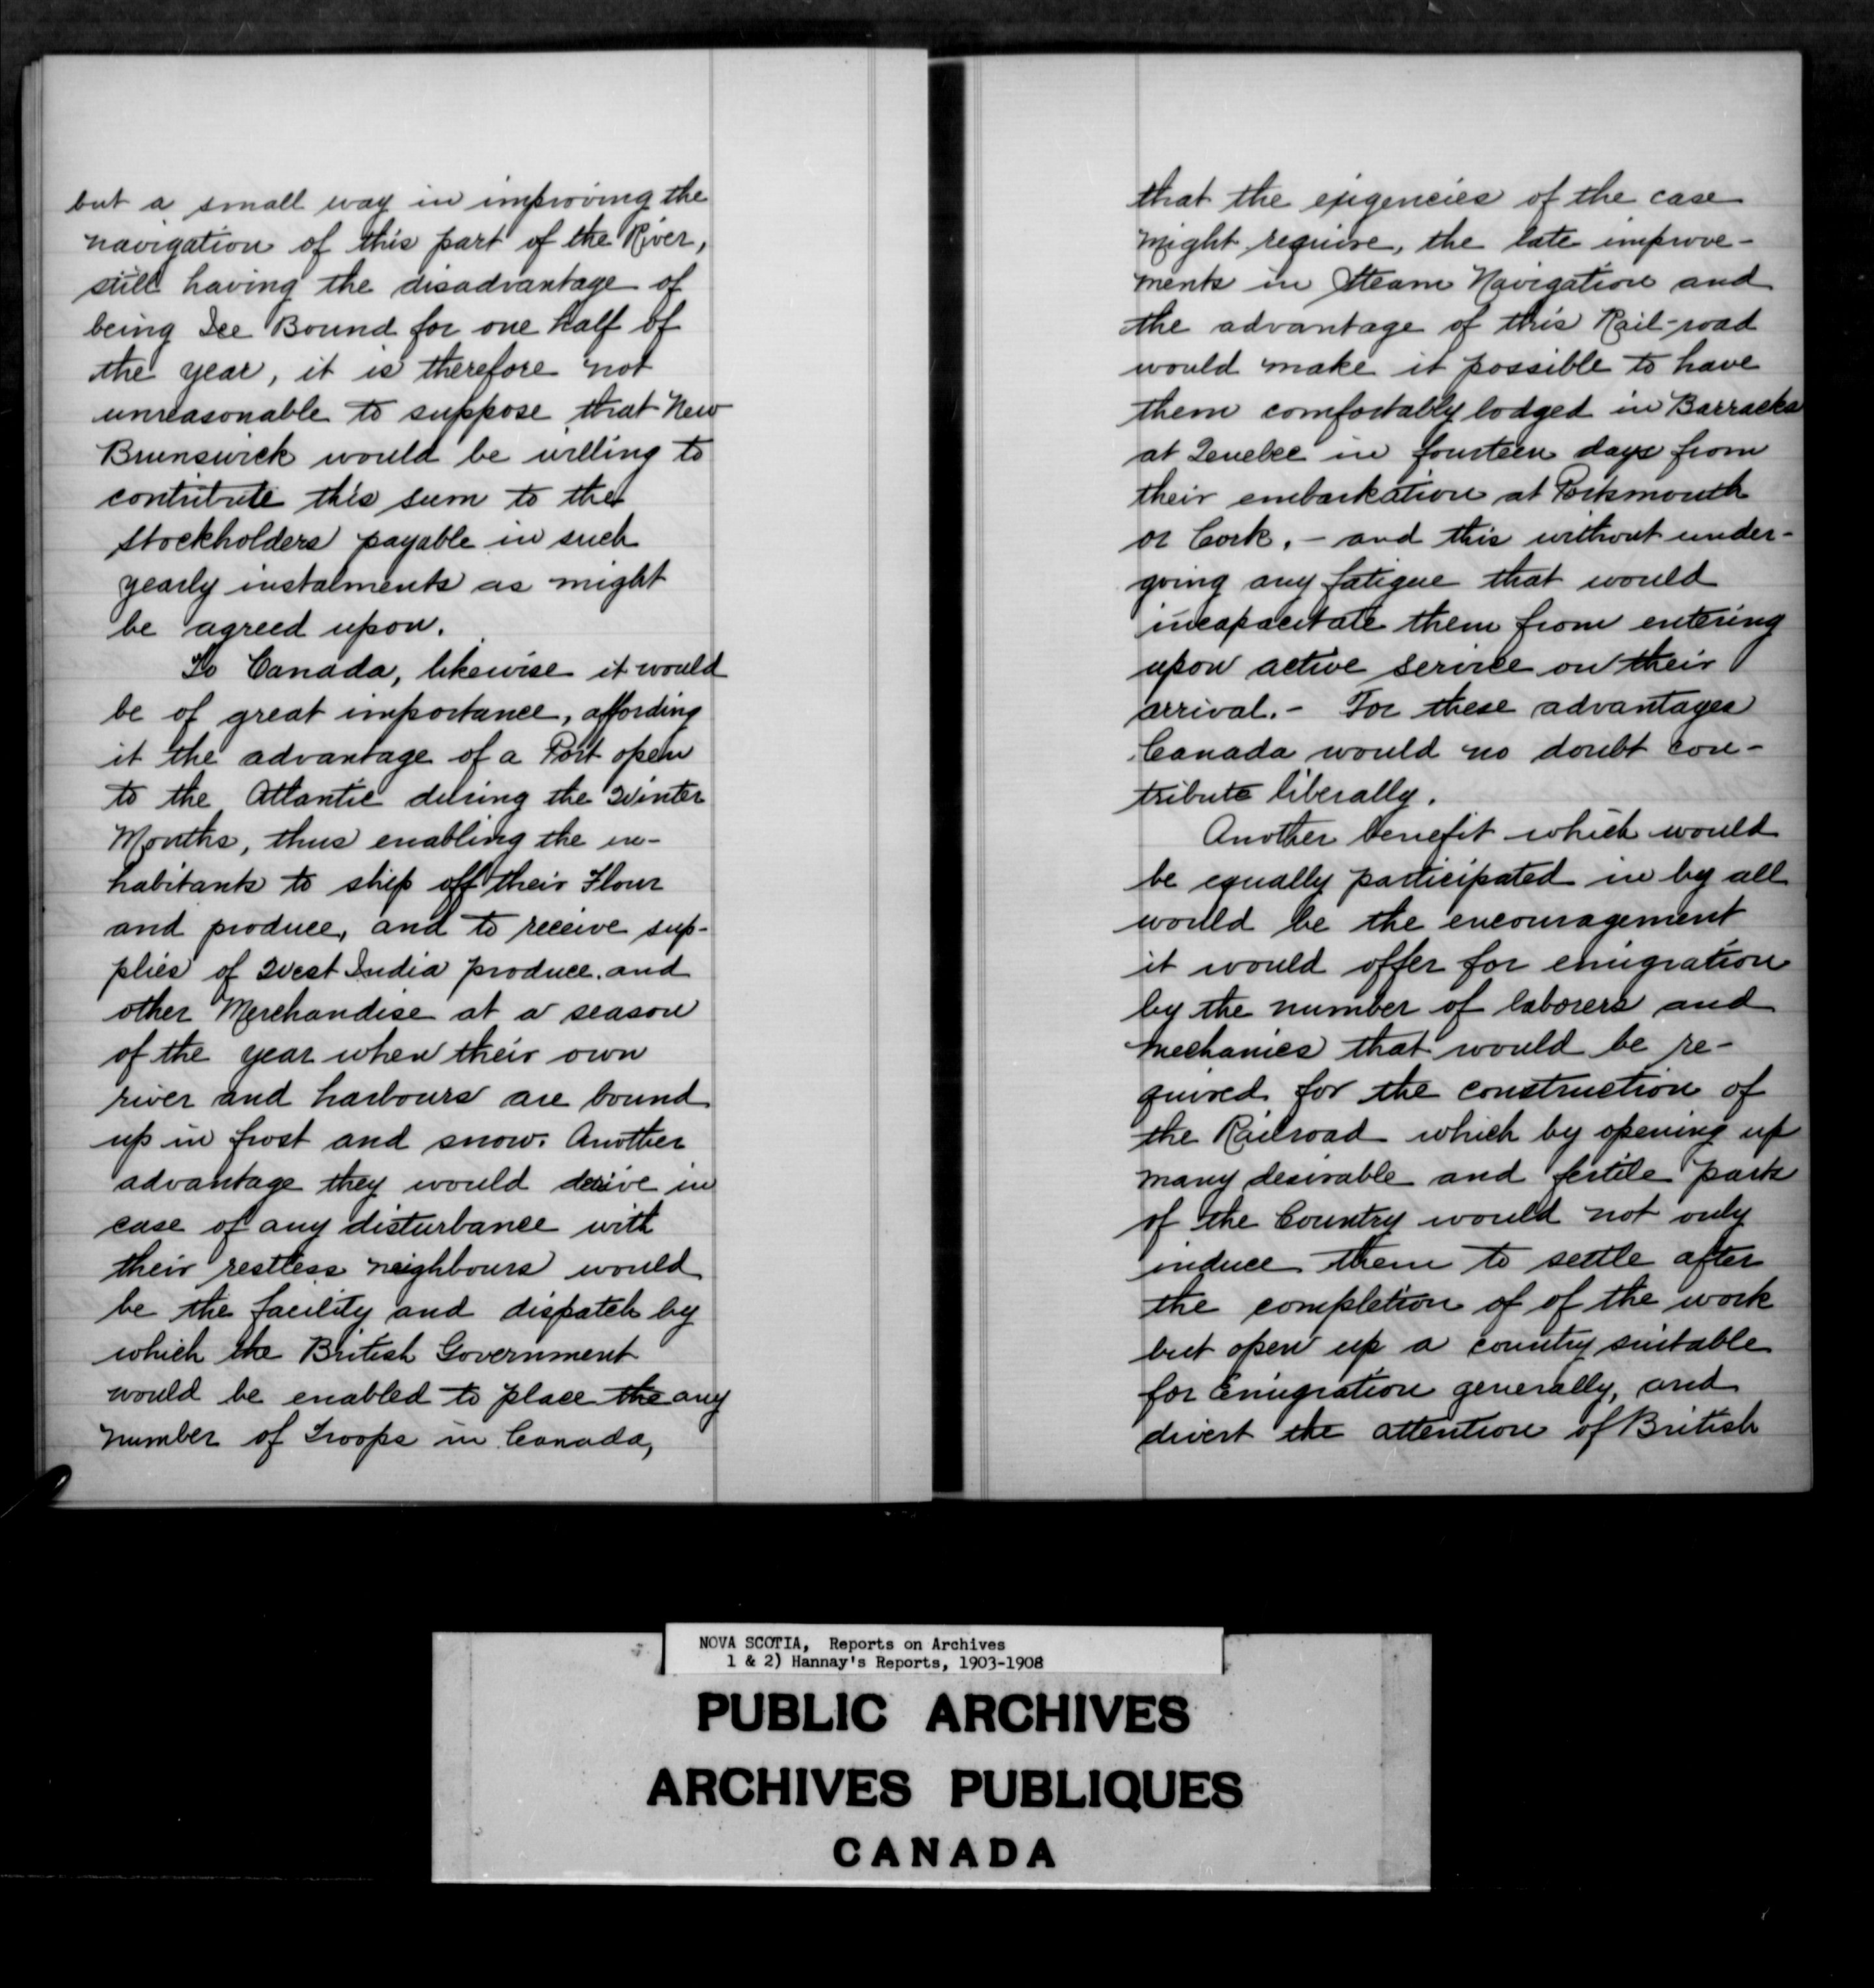 but a small way in improving the
navigation of this part of the River,
still having the disadvantage of
being Ice Bound for one half of
the year, it is therefore not
unreasonable to suppose that New
Brunswick would be willing to
contribute this sum to the
stockholders payable in such
yearly instalments as might
be agreed upon.
To Canada, likewise it would
be of great importance, affording
it the advantage of a Port open
to the Atlantic during the Winter
Months, thus enabling the in-
habitants to ship off their Flour
and produce, and to receive sup-
plies of West India produce and
other Merchandise at a season
of the year when their own
river and harbours are bound
up in frost and snow. Another
advantage they would derive in
case of any disturbance with
their restless neighbours would
be the facility and dispatch by
which the British Government
would be enabled to place the any
number of Troops in Canada,
that the exigencies of the case
might require, the late improve-
ments in Steam Navigation and
the advantage of this Rail-road
would make it possible to have
them comfortably lodged in Barracks
at Quebec in fourteen days from
their embarkation at Portsmouth
or Cork, - and this without under-
going any fatigue that would
incapacitate them from entering
upon active service on their
arrival. - For these advantages
Canada would no doubt con-
tribute liberally.
Another benefit which would
be equally participated in by all
would be the encouragement
it would offer for emigration
by the number of laborers and
mechanics that would be re-
quired for the construction of
the Railroad which by opening up
many desirable and fertile parts
of the Country would not only
induce them to settle after
the completion of of the work
but open up a country suitable
for Emigration generally, and
divert the attention of British
NOVA SCOTIA, Reports on Archives
1 & 2) Hannay's Reports, 1903-1908
PUBLIC ARCHIVES
ARCHIVES PUBLIQUES
CANADA